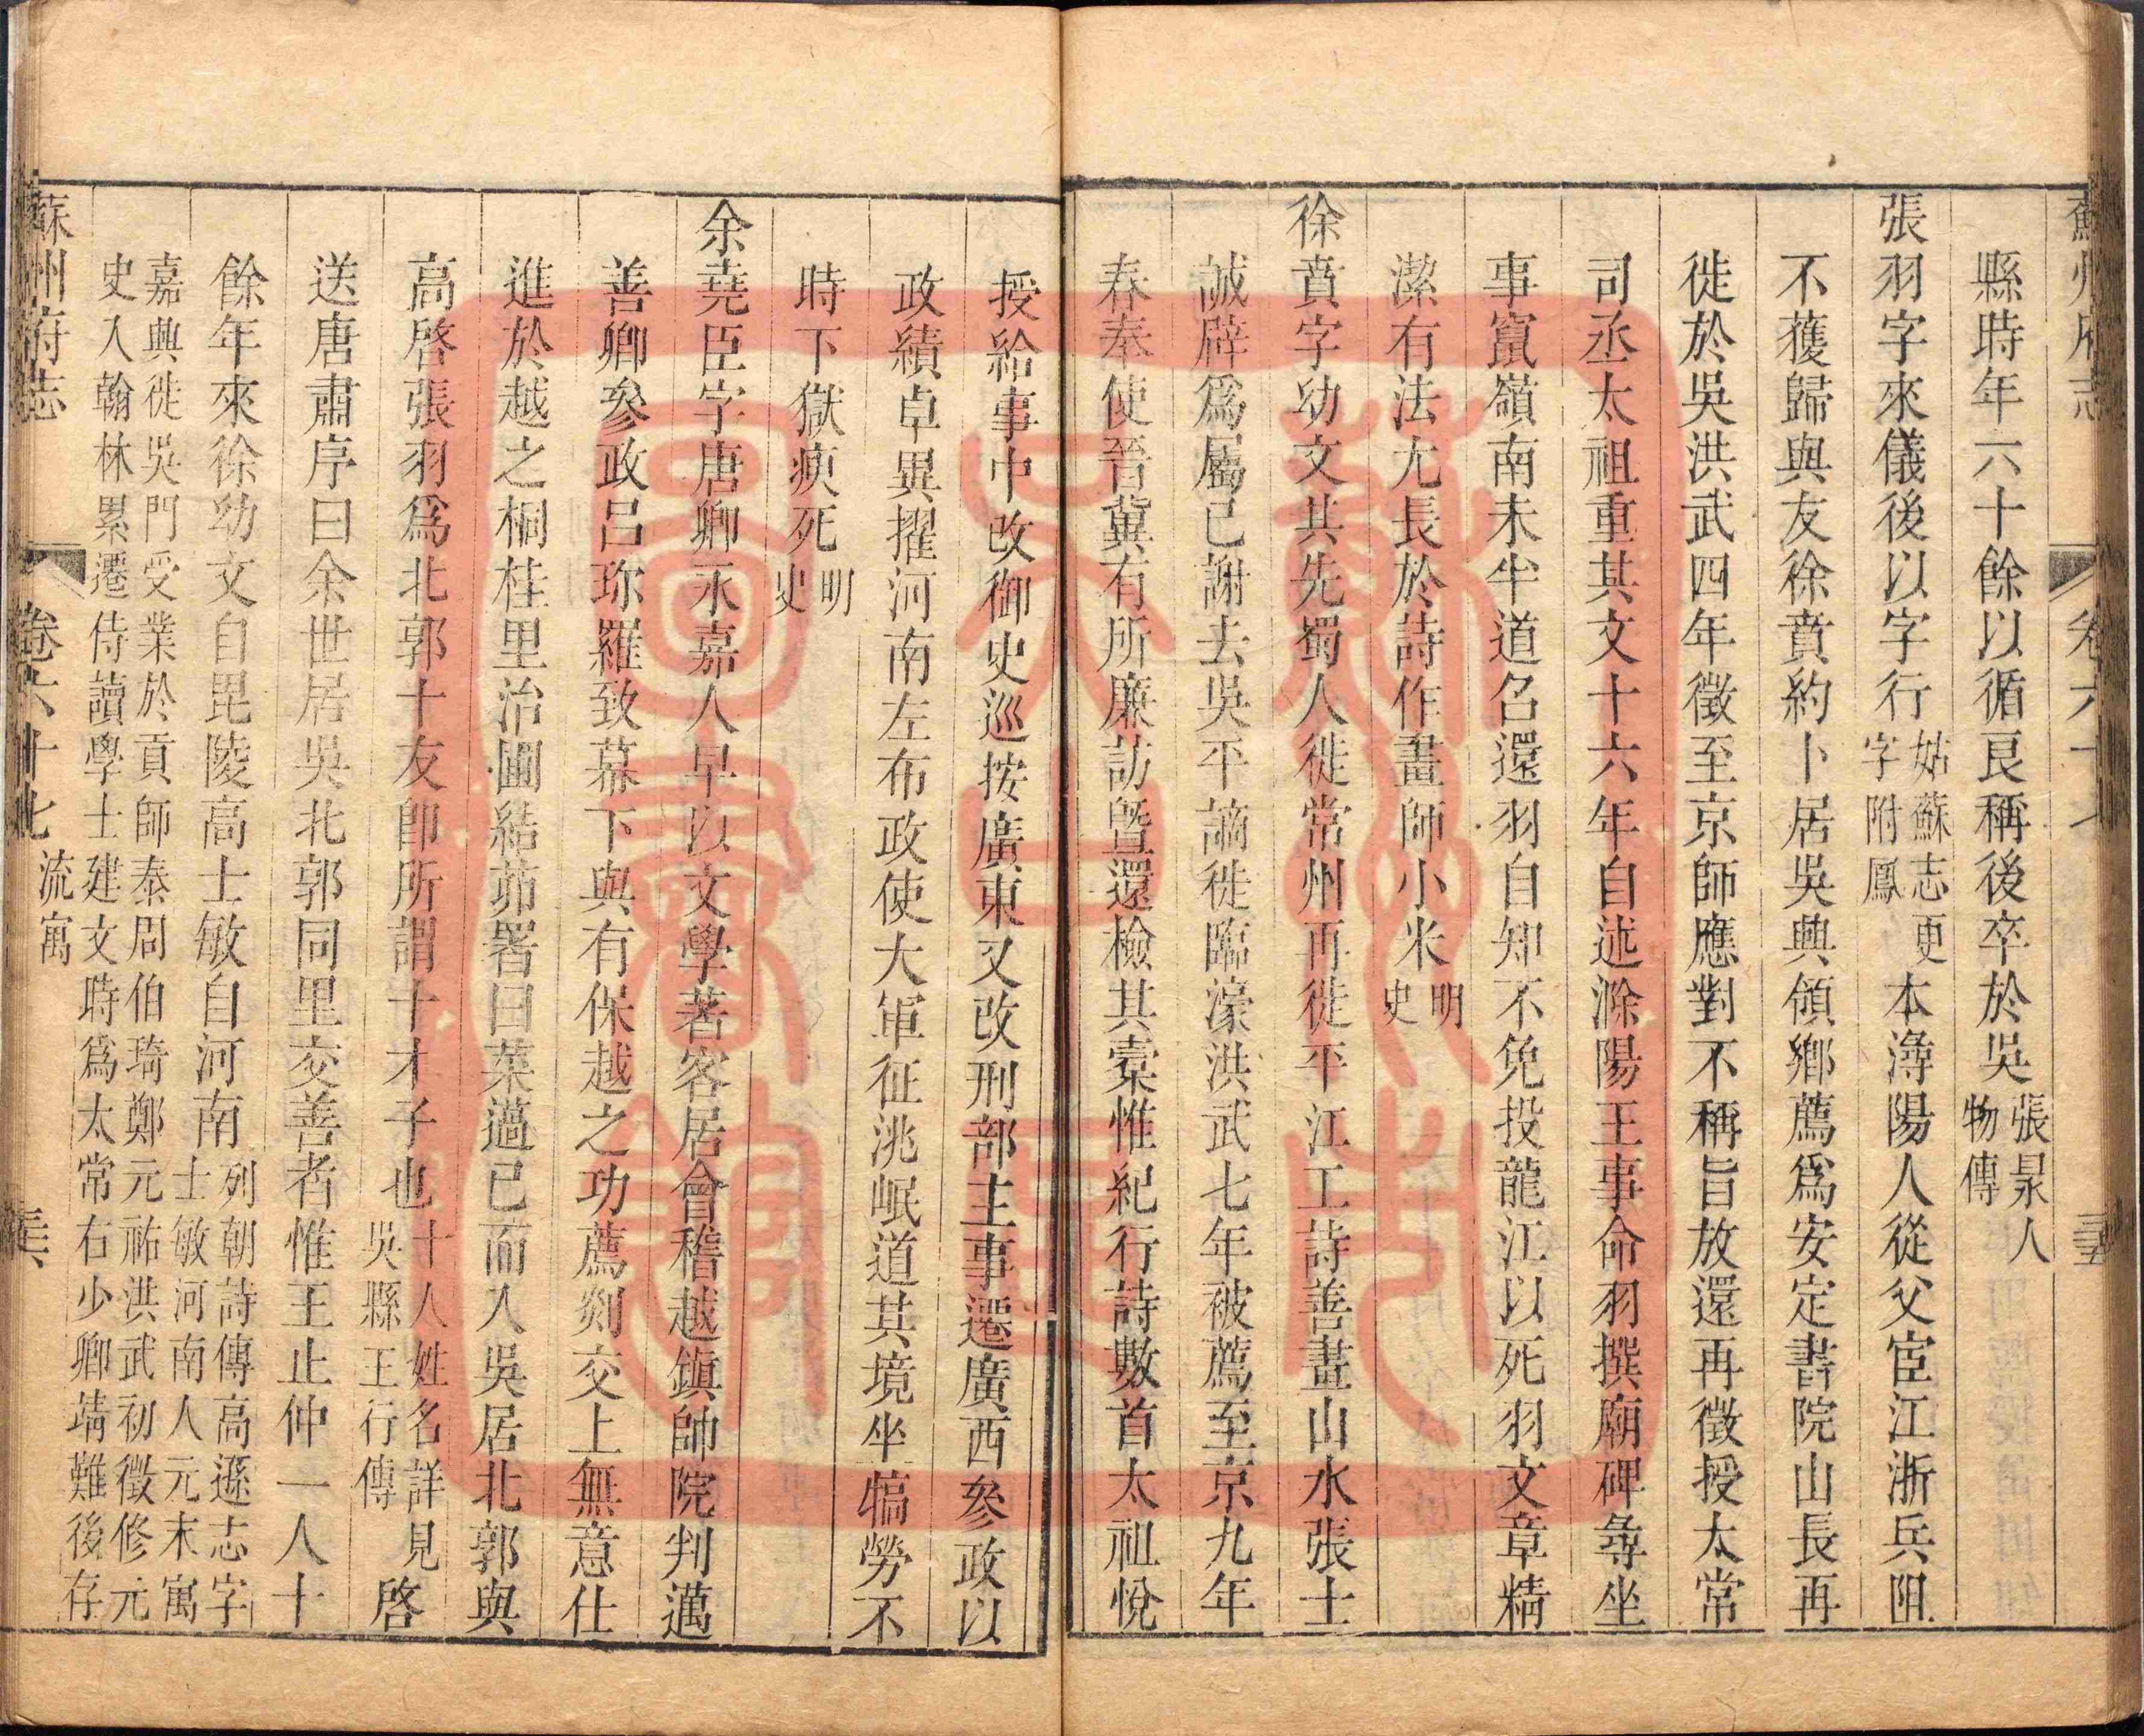 蘇州府志 卷六十七 三五
縣時年六十餘以循良稱後卒於吳張㫤人物傳
張羽字來儀後以字行姑蘇志更字附鳳本潯陽人從父宦江浙兵阻
不獲歸與友徐賁約卜居吳興領鄉薦爲安定書院山長再
徙於吳洪武四年徵至京師應對不稱旨放還再徵授太常
司丞太祖重其文十六年自述滁陽王事命羽撰廟碑尋坐
事竄嶺南未半道召還羽自知不免投龍江以死羽文章精
潔有法尤長於詩作畫師小米明史
徐賁字幼文其先蜀人徙常州再徙平江工詩善畫山水張士
誠辟爲屬已謝去吳平謫徙臨濠洪武七年被薦至京九年
春奉使晉冀有所廉訪曁還檢其橐惟紀行詩數首太祖悅
授給事中改御史巡按廣東又改刑部主事遷廣西參政以
政績卓異擢河南左布政使大軍征洮岷道其境坐犒勞不
時下獄瘐死明史
余堯臣字唐卿永嘉人早以文學著客居會稽越鎭帥院判邁
善卿參政呂珍羅致幕下與有保越之功薦剡交上無意仕
進於越之桐桂里治圃結茆署曰菜薖已而入吳居北郭與
高啓張羽爲北郭十友卽所謂十才子也十人姓名詳見吳縣王行傳啓
送唐肅序曰余世居吳北郭同里交善者惟王止仲一人十
餘年來徐幼文自毘陵高士敏自河南列朝詩傳高遜志字士敏河南人元末寓
嘉興徙吳門受業於貢師泰周伯琦鄭元祐洪武初徵修元
史入翰林累遷侍讀學士建文時爲太常右少卿靖難後存
蘇州府志 卷六十七 流寓 三六